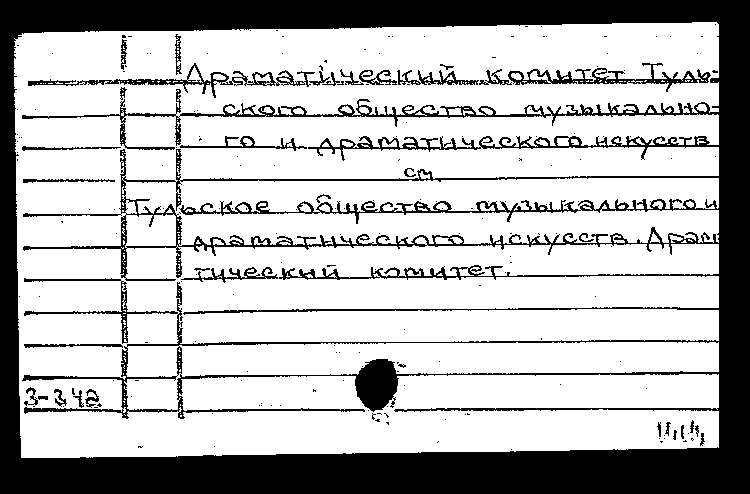 Драматический комитет Туль-
ского общество музыкально-
го и драматического искусств
см.
Тульское общество музыкального и
драматического искусств. Драм
тический комитет.
3-342